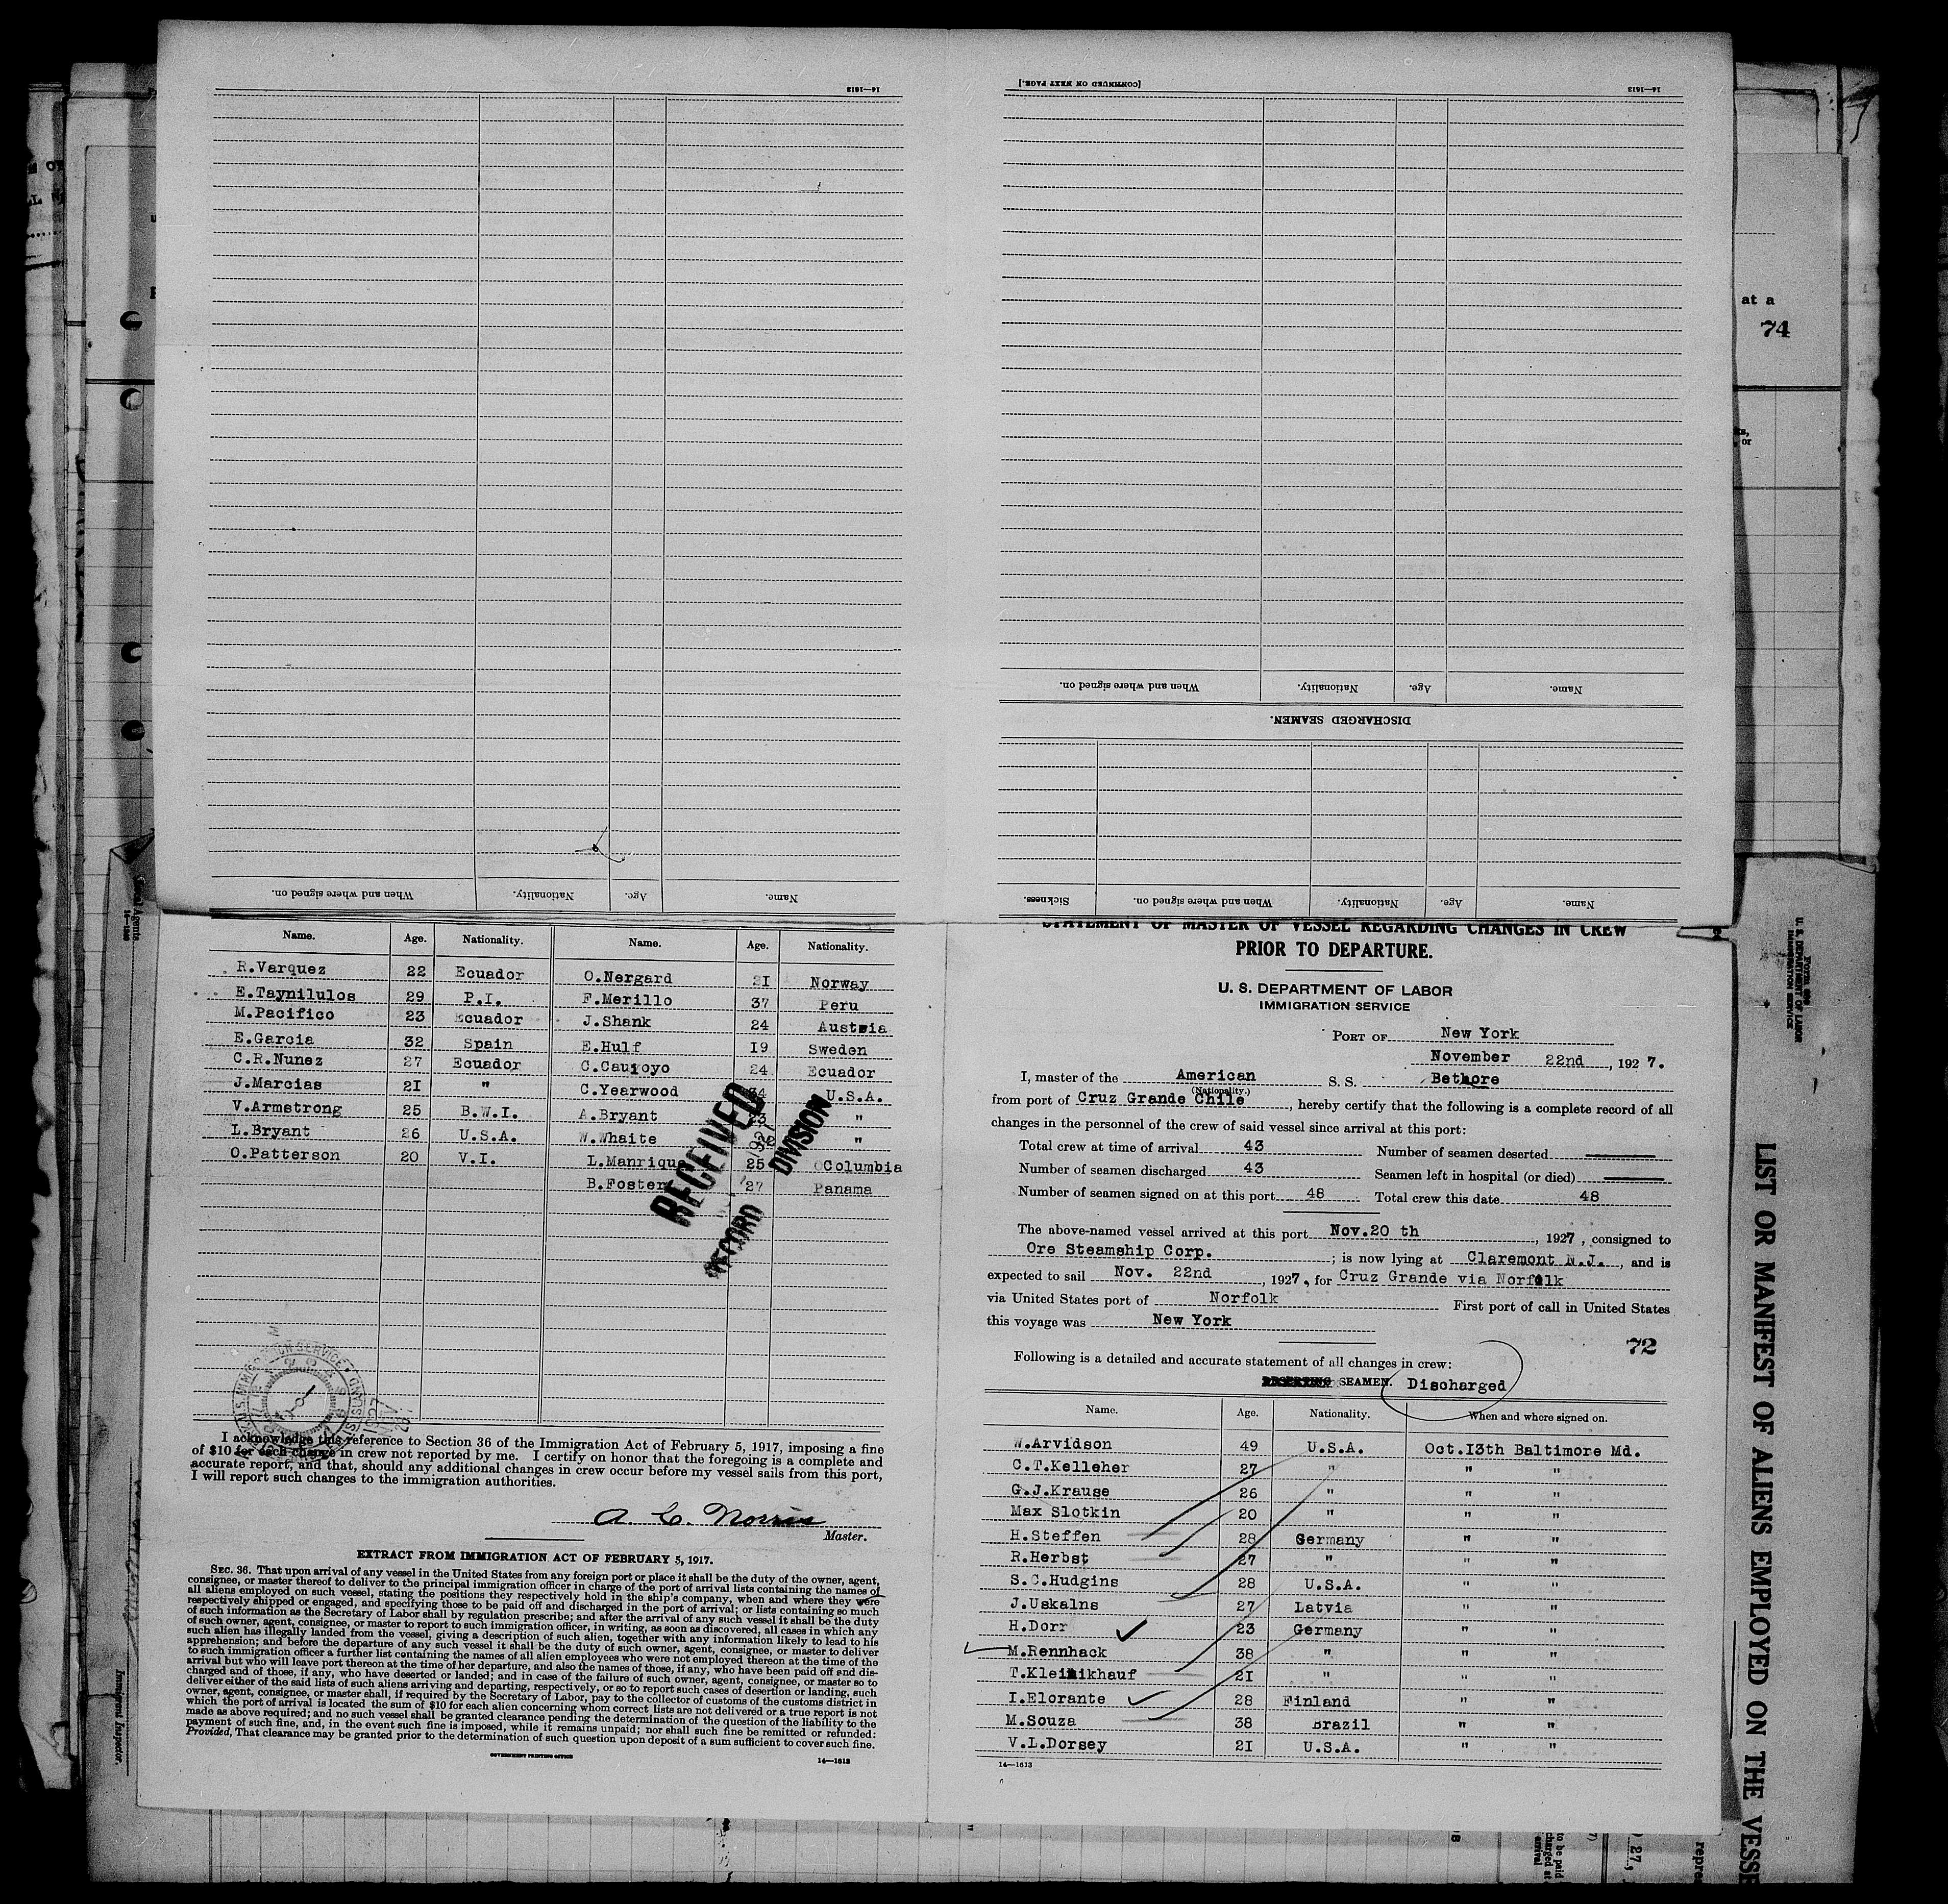 [CONTINUED ON NEXT PAGE.]
14—1613
14—1613
When and where signed on. Nationality. Age. Name.
DISCHARGED SEAMEN.
When and where signed on. Nationality. Age. Name.
Sickness. When and where signed on. Nationality. Age. Name.
at a
74
Name. Age. Nationality. Name. Age. Nationality.
R.Varquez 22 Ecuador O.Nergard 21 Norway
E.Taynilulos 29 P.I. F.Merillo 37 Peru
M.Pacifico 23 Ecuador J.Shank 24 Austria
E.Garcia 32 Spain E.Hulf 19 Sweden
C.R.Nunez 27 Ecuador C.Cauyoyo 24 Ecuador
J.Marcias 21 " C.Yearwood 34 U.S.A.
V.Armstrong 25 B.W.I. A.Bryant "
L.Bryant 26 U.S.A. W.Whaite "
O.Patterson 20 V.I. L.Manrique 25 Columbia
B.Foster 27 Panama
RECEIVED
RECORD DIVISION
I acknowledge this reference to Section 36 of the Immigration Act of February 5, 1917, imposing a fine
of $10 for each change in crew not reported by me. I certify on honor that the foregoing is a complete and
accurate report, and that, should any additional changes in crew occur before my vessel sails from this port,
I will report such changes to the immigration authorities.
A. C. Norris
Master.
EXTRACT FROM IMMIGRATION ACT OF FEBRUARY 5, 1917.
SEC. 36. That upon arrival of any vessel in the United States from any foreign port or place it shall be the duty of the owner, agent,
consignee, or master thereof to deliver to the principal immigration officer in charge of the port of arrival lists containing the names of
all aliens employed on such vessel, stating the positions they respectively hold in the ship's company, when and where they were
respectively shipped or engaged, and specifying those to be paid off and discharged in the port of arrival; or lists containing so much
of such information as the Secretary of Labor shall by regulation prescribe; and after the arrival of any such vessel it shall be the duty
of such owner, agent, consignee, or master to report to such immigration officer, in writing, as soon as discovered, all cases in which any
such alien has illegally landed from the vessel, giving a description of such alien, together with any information likely to lead to his
apprehension; and before the departure of any such vessel it shall be the duty of such owner, agent, consignee, or master to deliver
to such immigration officer a further list containing the names of all alien employees who were not employed thereon at the time of the
arrival but who will leave port thereon at the time of her departure, and also the names of those, if any, who have been paid off and dis-
charged and of those, if any, who have deserted or landed; and in case of the failure of such owner, agent, consignee, or master so to
deliver either of the said lists of such aliens arriving and departing, respectively, or so to report such cases of desertion or landing, such
owner, agent, consignee, or master shall, if required by the Secretary of Labor, pay to the collector of customs of the customs district in
which the port of arrival is located the sum of $10 for each alien concerning whom correct lists are not delivered or a true report is not
made as above required; and no such vessel shall be granted clearance pending the determination of the question of the liability to the
payment of such fine, and, in the event such fine is imposed, while it remains unpaid; nor shall such fine be remitted or refunded:
Provided, That clearance may be granted prior to the determination of such question upon deposit of a sum sufficient to cover such fine.
GOVERNMENT PRINTING OFFICE
14—1613
STATEMENT OF MASTER OF VESSEL REGARDING CHANGES IN CREW
PRIOR TO DEPARTURE.
U. S. DEPARTMENT OF LABOR
IMMIGRATION SERVICE
PORT OF New York
November 22nd, 1927.
I, master of the American S. S. Bethore
(Nationality.)
from port of Cruz Grande Chile, hereby certify that the following is a complete record of all
changes in the personnel of the crew of said vessel since arrival at this port:
Total crew at time of arrival 43 Number of seamen deserted
Number of seamen discharged 43 Seamen left in hospital (or died)
Number of seamen signed on at this port 48 Total crew this date 48
The above-named vessel arrived at this port Nov.20 th, 1927, consigned to
Ore Steamship Corp.; is now lying at Claremont N.J., and is
expected to sail Nov. 22nd, 1927, for Cruz Grande via Norfolk
via United States port of Norfolk First port of call in United States
this voyage was New York
72
Following is a detailed and accurate statement of all changes in crew:
SEAMEN. Discharged
Name. Age. Nationality. When and where signed on.
W.Arvidson 49 U.S.A. Oct.13th Baltimore Md.
C.T.Kelleher 27 " " "
G.J.Krause 26 " " "
Max Slotkin 20 " " "
H.Steffen 28 Germany " "
R.Herbst 27 " " "
S.C.Hudgins 28 U.S.A. " "
J.Uskalns 27 Latvia " "
H.Dorr 23 Germany " "
M.Rennhack 38 " " "
T.Kleinikhauf 21 " " "
I.Elorante 28 Finland " "
M.Souza 38 Brazil " "
V.L.Dorsey 21 U.S.A. " "
14—1613
U. S. DEPARTMENT OF LABOR
IMMIGRATION SERVICE
LIST OR MANIFEST OF ALIENS EMPLOYED ON THE VESSE
Immigrant Inspector.